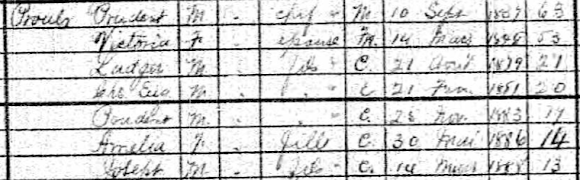 Proulx Prudent M " chef " M 10 Sept 1837 63
Victoria F " épouse M 14 Mars 53
Ludger M " fils " C 21 Avril 1879 21
M " " " C 21 1881 20
Prudent M " " C 28 Nov 1883 17
Amelia F " fille " C 30 Mai 1886 14
Joseph M " fils " C 14 Mars 1888 13